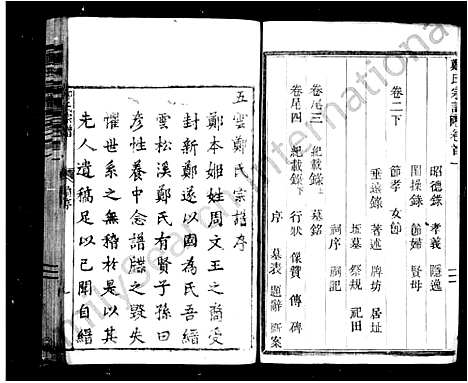 鄭氏宗譜 卷首
昭德錄 孝義 隱逸
閨操錄 節婦 賢母
節孝 女節
卷二下
垂遠錄 著述 牌坊 居址
坵墓 祭規 祀田
祠序 祠記
卷尾三 紀載錄上 墓銘
卷尾四 紀載錄下 行狀 保贊 傳 碑
序 墓表 題辭 斷案
五雲鄭氏宗譜序
鄭本姬姓周文王之裔受
封新鄭遂以國為氏吾縉
雲松溪鄭氏有賢子孫曰
彥性養中念譜牒之毀失
懼世系之無稽於是以其
先人遺稿足以已聞自縉
familypearch international